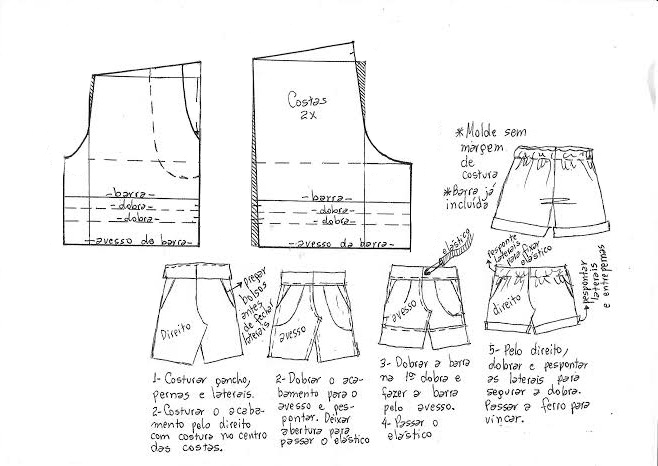 Costas
2x
-barra-
-dobra-
-dobra-
-avesso da barra-
-barra-
-dobra-
-dobra-
-avesso da barra-
*Molde sem
margem
de
costura
*Barra já
incluída
Direito
prepar
bolsos
antes
de fechar
laterais
avesso
elástico
avesso
pesponte
laterais
para fixar
elástico
direito
pespontar
laterais
e entrepernas
1- Costurar gancho,
pernas e laterais.
2- Costurar o acaba-
mento pelo direito
com costura no centro
das costas.
2- Dobrar o aca-
bamento para o
avesso e pes-
pontar. Deixar
abertura para
passar o elástico
3- Dobrar a barra
na 1ª dobra e
fazer a barra
pelo avesso.
4- Passar o
elástico
5- Pelo direito,
dobrar e pespontar
as laterais para
segurar a dobra.
Passar a ferro para
vincar.